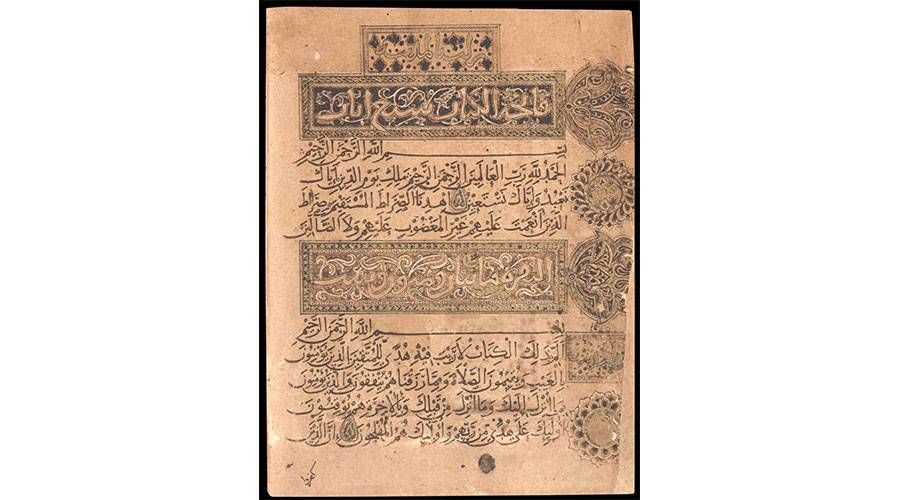 فاتحة الكتاب سبع ايات
بِسْمِ اللَّهِ الرَّحْمَنِ الرَّحِيمِ
الحَمْدُ لِلَّهِ رَبِّ العَالَمِينَ الرَّحْمَنِ الرَّحِيمِ مَلِكِ يَوْمِ الدِّينِ إِيَّاكَ
نَعْبُدُ وَإِيَّاكَ نَسْتَعِينُ اهْدِنَا الصِّرَاطَ المُسْتَقِيمَ صِرَاطَ
الَّذِينَ أَنْعَمْتَ عَلَيْهِمْ غَيْرِ المَغْضُوبِ عَلَيْهِمْ وَلَا الضَّالِّينَ
البقرة مائتان وثمانون وست
بِسْمِ اللَّهِ الرَّحْمَنِ الرَّحِيمِ
الم ذَلِكَ الكِتَابُ لَا رَيْبَ فِيهِ هُدًى لِلْمُتَّقِينَ الَّذِينَ يُؤْمِنُونَ
بِالْغَيْبِ وَيُقِيمُونَ الصَّلَاةَ وَمِمَّا رَزَقْنَاهُمْ يُنْفِقُونَ وَالَّذِينَ يُؤْمِنُونَ
بِمَا أُنْزِلَ إِلَيْكَ وَمَا أُنْزِلَ مِنْ قَبْلِكَ وَبِالْآخِرَةِ هُمْ يُوقِنُونَ
أُولَئِكَ عَلَى هُدًى مِنْ رَبِّهِمْ وَأُولَئِكَ هُمُ المُفْلِحُونَ إِنَّ الَّذِينَ
كفروا